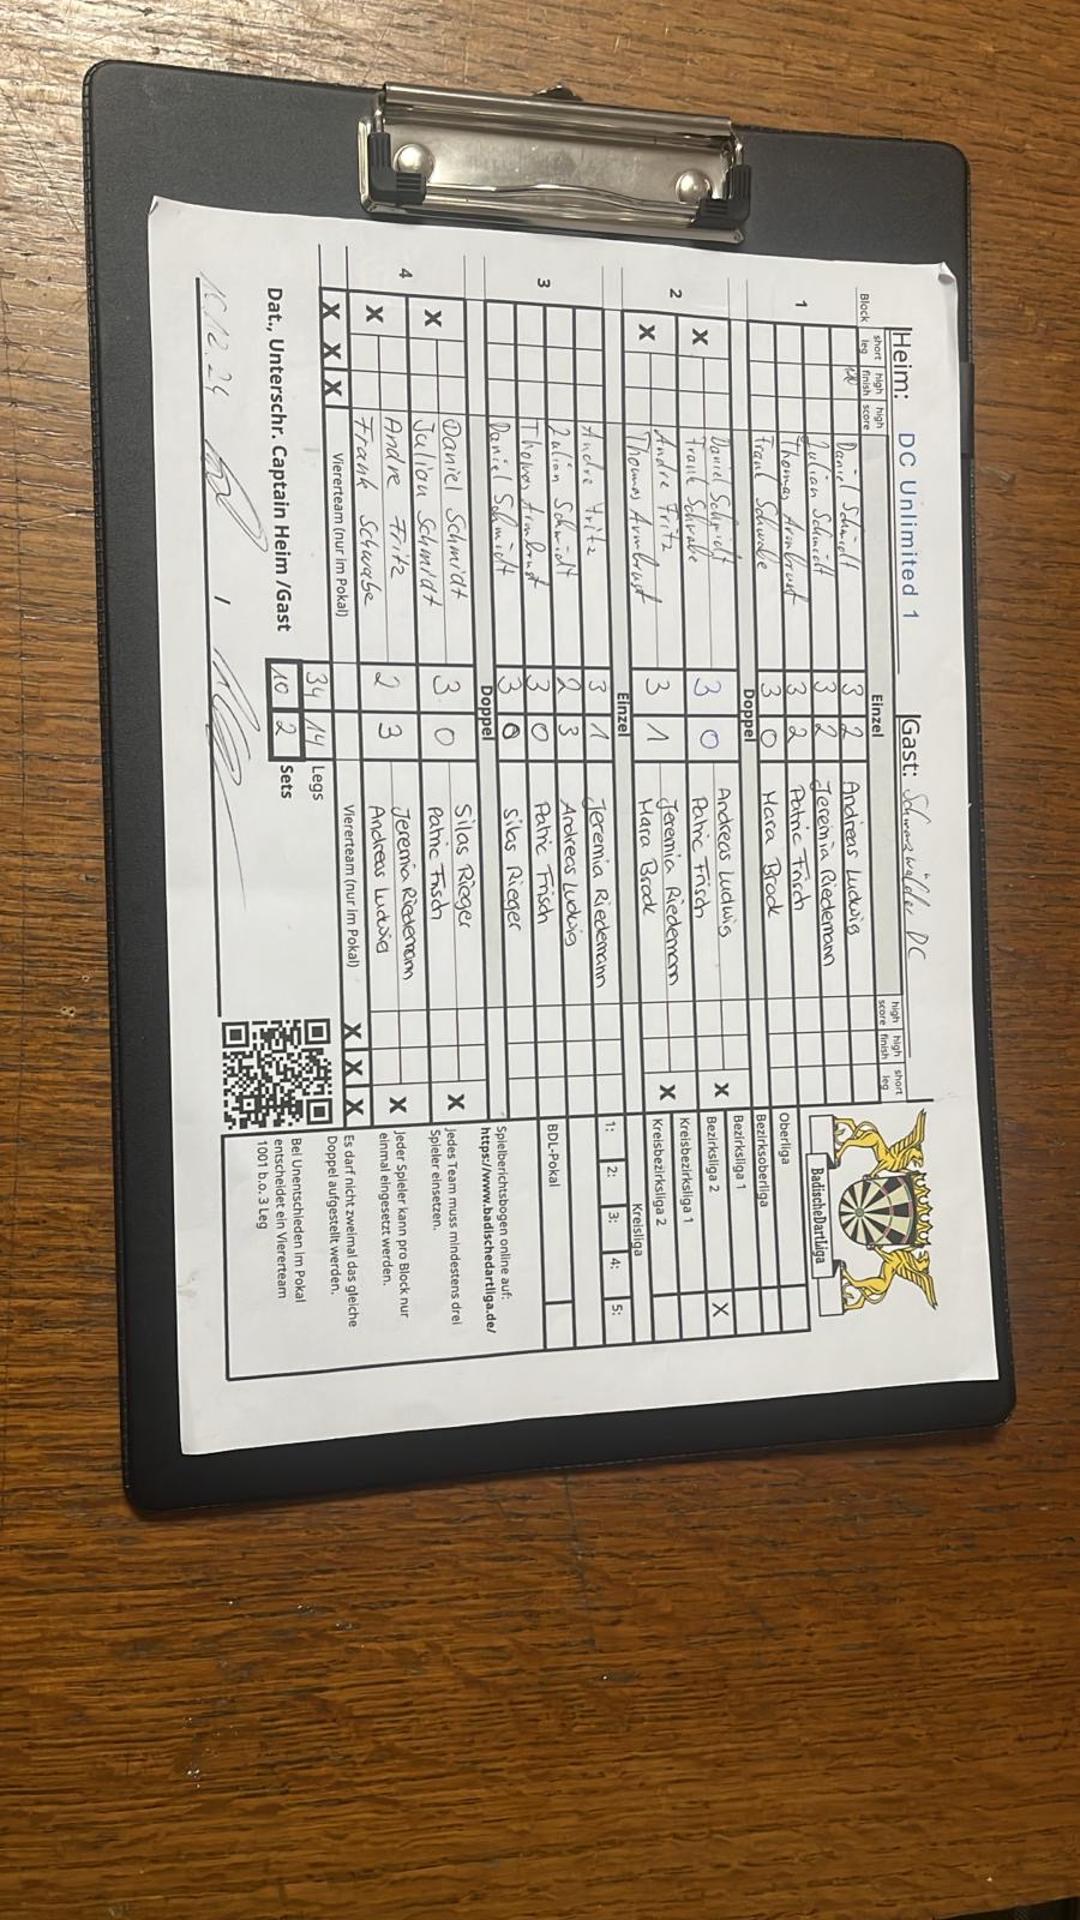 Heim: DC Unlimited 1 Gast: Schwarzwälder DC
BadischeDartLiga
Block short leg high finish high score Einzel high score high finish short leg
1
Daniel Schmidt 3 2 Andreas Ludwig
Julian Schmidt 3 2 Jeremia Riedemann
Thomas Armbrust 3 2 Patric Frisch
Frank Schwabe 3 0 Mara Brock
Doppel
2
X Daniel Schmidt 3 0 Andreas Ludwig X
Frank Schwabe Patric Frisch
X Andre Fritz 3 1 Jeremia Riedemann X
Thomas Armbrust Mara Brock
Einzel
3
Andre Fritz 3 1 Jeremia Riedemann
Julian Schmidt 2 3 Andreas Ludwig
Thomas Armbrust 3 0 Patric Frisch
Daniel Schmidt 3 0 Silas Rieger
Doppel
4
X Daniel Schmidt 3 0 Silas Rieger X
Julian Schmidt Patric Frisch
X Andre Fritz 2 3 Jeremia Riedemann X
Frank Schwabe Andreas Ludwig
Vierterteam (nur im Pokal) Vierterteam (nur im Pokal)
X X X X X X
34 14 Legs
Dat., Unterschr. Captain Heim /Gast 10 2 Sets
12.24 /
Oberliga
Bezirksoberliga
Bezirksliga 1
Bezirksliga 2 X
Kreisbezirksliga 1
Kreisbezirksliga 2
Kreisliga
1: 2: 3: 4: 5:
BDL-Pokal
Spielberichtsbogen online auf:
https://www.badischedartliga.de/
Jedes Team muss mindestens drei
Spieler einsetzen.
Jeder Spieler kann pro Block nur
einmal eingesetzt werden.
Es darf nicht zweimal das gleiche
Doppel aufgestellt werden.
Bei Unentschieden im Pokal
entscheidet ein Viererteam
1001 b.o. 3 Leg